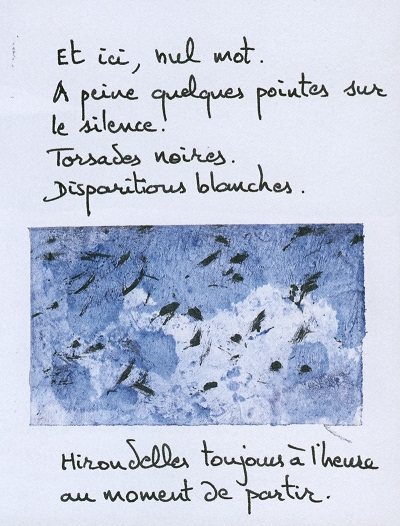 Et ici, nul mot.
A peine quelques pointes sur
le silence.
Torsades noires.
Disparitions blanches.
Hirondelles toujours à l'heure
au moment de partir.